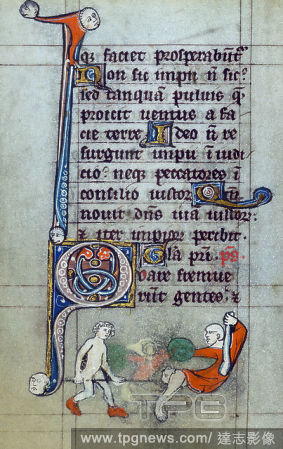 qȝ faciet prosperabūt᷑
Non sic impii n̄ sic:
sed tanquā puluis q̄
proicit uentus a fa
cie terre. Ideo n̄ re
surgunt impii ī iudi
cio: neqȝ peccatores ī
consilio iustoꝝ. Qm̄
nouit dn̄s uiā iustoꝝ:
⁊ iter impioꝝ peribit.
Gl̄a pr̄i. ps̄.
Quare fremue
rūt gentes: ⁊
TPG
www.tpgnews.com/ 達志影像